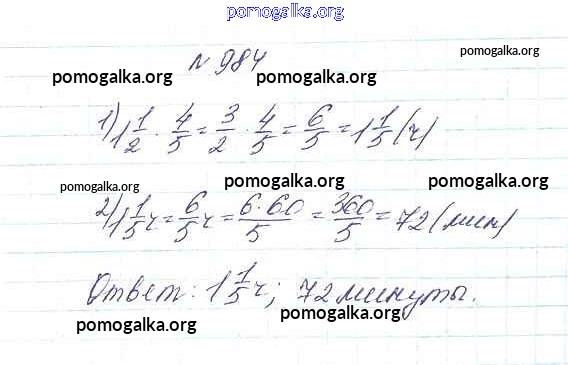 pomogalka.org
№ 984
pomogalka.org
pomogalka.org pomogalka.org
1) 1 1/2 · 4/5 = 3/2 · 4/5 = 6/5 = 1 1/5 (ч)
pomogalka.org pomogalka.org pomogalka.org
2) 1 1/5 ч = 6/5 ч = 6·60/5 = 360/5 = 72 (мин)
Ответ: 1 1/5 ч; 72 минуты.
pomogalka.org pomogalka.org